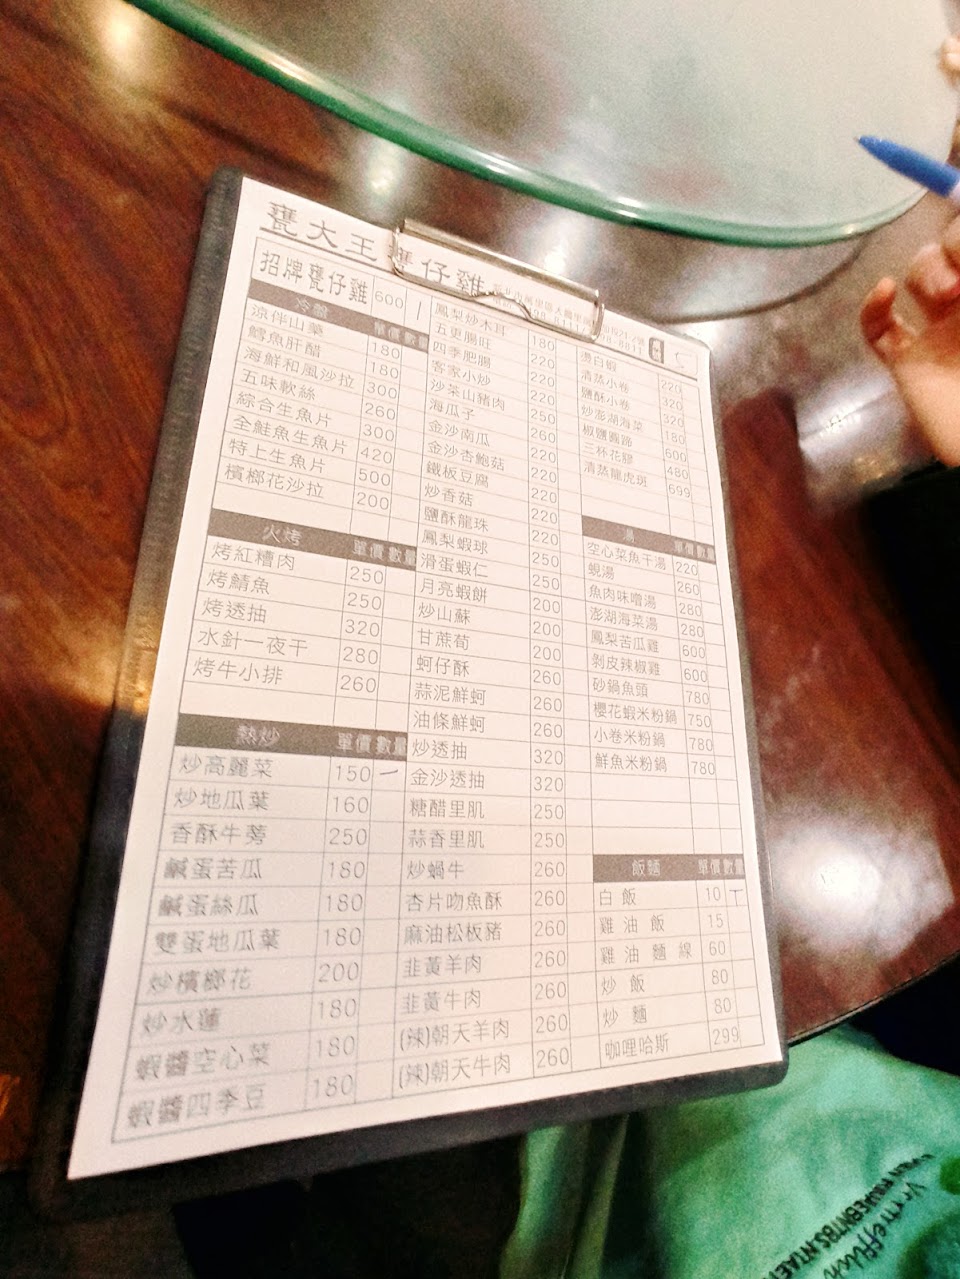 甕大王 甕仔雞
招牌甕仔雞 600
冷盤 單價 數量
涼伴山藥 180
鱈魚肝醋 180
海鮮和風沙拉 300
五味軟絲 260
綜合生魚片 300
全鮭魚生魚片 420
特上生魚片 500
檳榔花沙拉 200
火烤 單價 數量
烤紅糟肉 250
烤鯖魚 250
烤透抽 320
水針一夜干 280
烤牛小排 260
熱炒 單價 數量
炒高麗菜 150 一
炒地瓜葉 160
香酥牛蒡 250
鹹蛋苦瓜 180
鹹蛋絲瓜 180
雙蛋地瓜葉 180
炒檳榔花 200
炒水蓮 180
蝦醬空心菜 180
蝦醬四季豆 180
鳳梨炒木耳 180
五更腸旺 220
四季肥腸 220
客家小炒 220
沙茶山豬肉 250
海瓜子 260
金沙南瓜 220
金沙杏鮑菇 220
鐵板豆腐 220
炒香菇 220
鹽酥龍珠 220
鳳梨蝦球 250
滑蛋蝦仁 250
月亮蝦餅 200
炒山蘇 200
甘蔗荀 200
蚵仔酥 260
蒜泥鮮蚵 260
油條鮮蚵 260
炒透抽 320
金沙透抽 320
糖醋里肌 250
蒜香里肌 250
炒蝸牛 260
杏片吻魚酥 260
麻油松板豬 260
韭黃羊肉 260
韭黃牛肉 260
(辣)朝天羊肉 260
(辣)朝天牛肉 260
燙白蝦 220
清蒸小卷 320
鹽酥小卷 320
炒澎湖海菜 180
椒鹽圓蹄 600
三杯花膠 480
清蒸龍虎斑 699
湯 單價 數量
空心菜魚干湯 220
蜆湯 260
魚肉味噌湯 280
澎湖海菜湯 280
鳳梨苦瓜雞 600
剝皮辣椒雞 600
砂鍋魚頭 780
櫻花蝦米粉鍋 750
小卷米粉鍋 780
鮮魚米粉鍋 780
飯麵 單價 數量
白飯 10
雞油飯 15
雞油麵線 60
炒飯 80
炒麵 80
咖哩哈斯 299